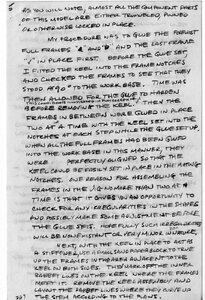 5
AS YOU WILL NOTE, ALMOST ALL THE COMPONENT PARTS
OF THIS MODEL ARE EITHER TRUNNELED, PINNED
OR OTHERWISE LOCKED IN PLACE.
MY PROCEDURE WAS TO GLUE THE FIRST
FULL FRAMES "A" AND "B" AND THE LAST FRAME
IN PLACE FIRST. BEFORE THE GLUE SET
I FITTED THE KEEL INTO THE FRAME NOTCHES
AND CHECKED THE FRAMES TO SEE THAT THEY
STOOD AT 90° TO THE WORK BASE. TIME WAS
THEN ALLOWED FOR THE GLUE TO HARDEN
BEFORE REMOVING THE KEEL. THEN THE
FRAMES IN BETWEEN WERE GLUED IN PLACE
TWO AT A TIME WITH THE KEEL SET INTO THE
NOTCHES AT EACH STEP WHILE THE GLUE SET UP.
WHEN ALL THE FULL FRAMES HAD BEEN GLUED
INTO THE WORK BASE IN THIS MANNER, THEY
WERE PERFECTLY ALIGNED SO THAT THE
KEEL COULD BE EASILY SET IN PLACE IN THE
NOTCHES. OUR REASON FOR ASSEMBLING THE
FRAMES IN THE JIG NO MORE THAN TWO AT A
TIME IS THAT IT GIVES YOU AN OPPORTUNITY TO
CHECK FOR ANY IRREGULARITIES IN THE
AND POSSIBLY MAKE SOME ADJUSTMENT BEFORE
THE GLUE SETS. HOPEFULLY SUCH IRREGULARITIES
WILL BE NONEXISTENT OR VERY MINOR
NEXT, WITH THE KEEL IN PLACE TO ACT AS
A STIFFENER,
OF THE FRAMES IN THE
KEEL ON BOTH SIDES. THEN MARK OFF THE
RABBET LINES ON THE KEEL WHERE THE FRAMES
MEET IT. REMOVE THE KEEL ASSEMBLY AND
THE RABBET LINES WHERE THEY
THE STEM ACCORDING TO THE PLANS.